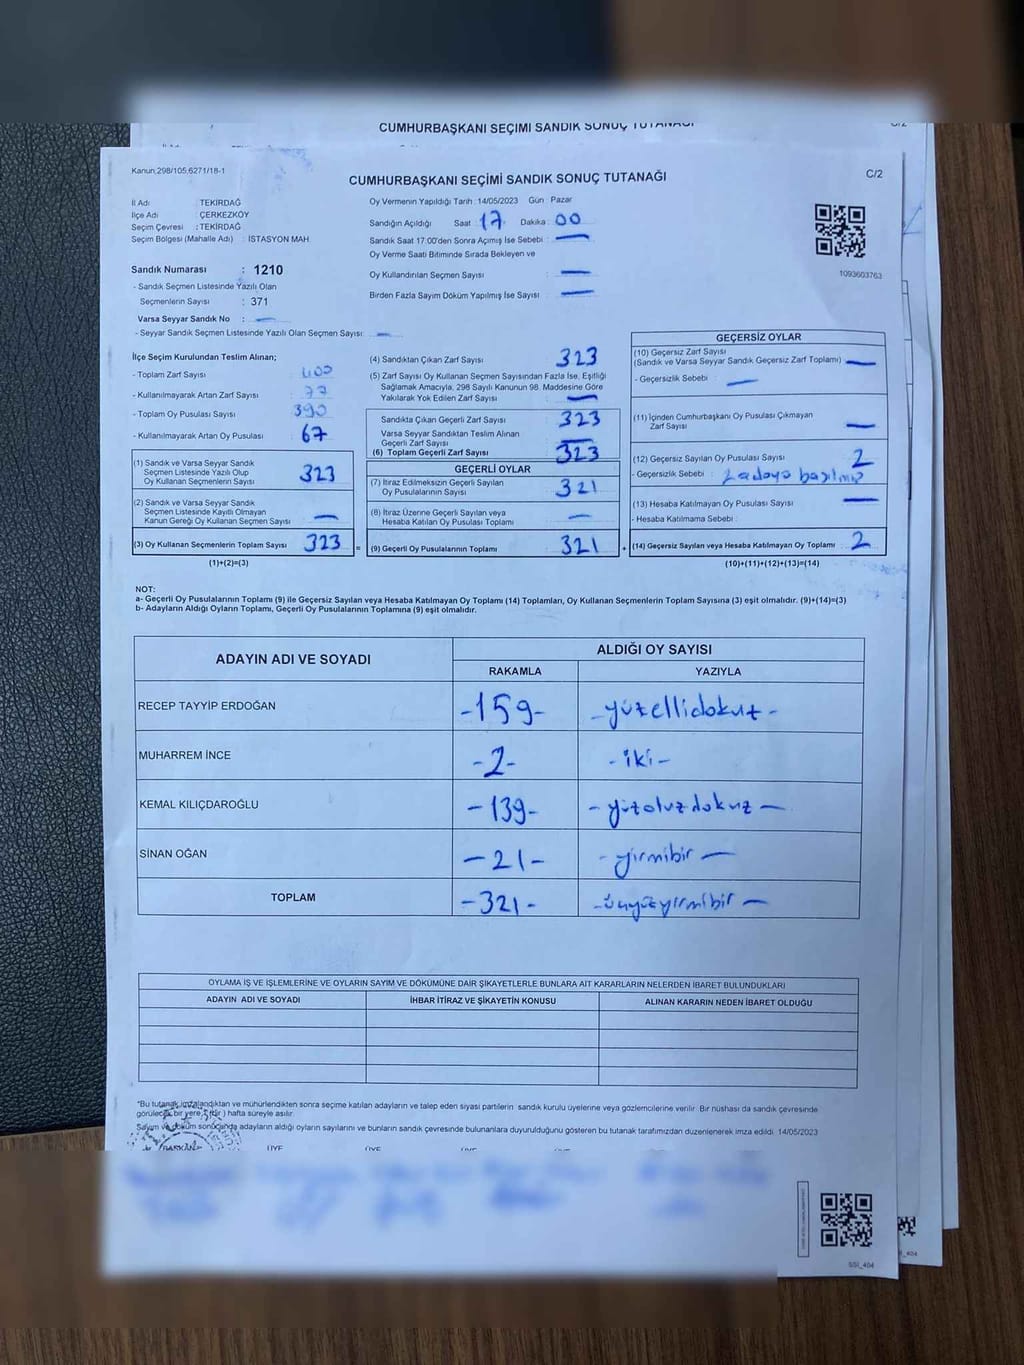 CUMHURBAŞKANI SEÇİMİ SANDIK SONUÇ TUTANAĞI
Kanun;298/105;6271/18-1
CUMHURBAŞKANI SEÇİMİ SANDIK SONUÇ TUTANAĞI
C/2
İl Adı : TEKİRDAĞ
İlçe Adı : ÇERKEZKÖY
Seçim Çevresi : TEKİRDAĞ
Seçim Bölgesi (Mahalle Adı) : İSTASYON MAH.
Oy Vermenin Yapıldığı Tarih : 14/05/2023 Gün : Pazar
Sandığın Açıldığı Saat : 17 Dakika : 00
Sandık Saat 17:00'den Sonra Açımış İse Sebebi : —
Oy Verme Saati Bitiminde Sırada Bekleyen ve
Oy Kullandırılan Seçmen Sayısı : —
Birden Fazla Sayım Döküm Yapılmış İse Sayısı : —
1093603763
Sandık Numarası : 1210
- Sandık Seçmen Listesinde Yazılı Olan
Seçmenlerin Sayısı : 371
Varsa Seyyar Sandık No : —
- Seyyar Sandık Seçmen Listesinde Yazılı Olan Seçmen Sayısı: —
İlçe Seçim Kurulundan Teslim Alınan;
- Toplam Zarf Sayısı : 400
- Kullanılmayarak Artan Zarf Sayısı : 77
- Toplam Oy Pusulası Sayısı : 390
- Kullanılmayarak Artan Oy Pusulası : 67
(1) Sandık ve Varsa Seyyar Sandık
Seçmen Listesinde Yazılı Olup
Oy Kullanan Seçmenlerin Sayısı : 323
(2) Sandık ve Varsa Seyyar Sandık
Seçmen Listesinde Kayıtlı Olmayan
Kanun Gereği Oy Kullanan Seçmen Sayısı : —
(3) Oy Kullanan Seçmenlerin Toplam Sayısı : 323
(1)+(2)=(3)
(4) Sandıktan Çıkan Zarf Sayısı : 323
(5) Zarf Sayısı Oy Kullanan Seçmen Sayısından Fazla İse, Eşitliği
Sağlamak Amacıyla, 298 Sayılı Kanunun 98. Maddesine Göre
Yakılarak Yok Edilen Zarf Sayısı : —
Sandıkta Çıkan Geçerli Zarf Sayısı : 323
Varsa Seyyar Sandıktan Teslim Alınan
Geçerli Zarf Sayısı : —
(6) Toplam Geçerli Zarf Sayısı : 323
GEÇERLİ OYLAR
(7) İtiraz Edilmeksizin Geçerli Sayılan
Oy Pusulalarının Sayısı : 321
(8) İtiraz Üzerine Geçerli Sayılan veya
Hesaba Katılan Oy Pusulası Toplamı : —
= (9) Geçerli Oy Pusulalarının Toplamı : 321 +
GEÇERSİZ OYLAR
(10) Geçersiz Zarf Sayısı
(Sandık ve Varsa Seyyar Sandık Geçersiz Zarf Toplamı) : —
- Geçersizlik Sebebi : —
(11) İçinden Cumhurbaşkanı Oy Pusulası Çıkmayan
Zarf Sayısı : —
(12) Geçersiz Sayılan Oy Pusulası Sayısı : 2
- Geçersizlik Sebebi : 2 adaya basılmış
(13) Hesaba Katılmayan Oy Pusulası Sayısı : —
- Hesaba Katılmama Sebebi :
(14) Geçersiz Sayılan veya Hesaba Katılmayan Oy Toplamı : 2
(10)+(11)+(12)+(13)=(14)
NOT:
a- Geçerli Oy Pusulalarının Toplamı (9) ile Geçersiz Sayılan veya Hesaba Katılmayan Oy Toplamı (14) Toplamları, Oy Kullanan Seçmenlerin Toplam Sayısına (3) eşit olmalıdır. (9)+(14)=(3)
b- Adayların Aldığı Oyların Toplamı, Geçerli Oy Pusulalarının Toplamına (9) eşit olmalıdır.
ADAYIN ADI VE SOYADI ALDIĞI OY SAYISI
RAKAMLA YAZIYLA
RECEP TAYYİP ERDOĞAN -159- -yüzellidokuz-
MUHARREM İNCE -2- -iki-
KEMAL KILIÇDAROĞLU -139- -yüzotuzdokuz-
SİNAN OĞAN -21- -yirmibir-
TOPLAM -321- -üçyüzyirmibir-
OYLAMA İŞ VE İŞLEMLERİNE VE OYLARIN SAYIM VE DÖKÜMÜNE DAİR ŞİKAYETLERLE BUNLARA AİT KARARLARIN NELERDEN İBARET BULUNDUKLARI
ADAYIN ADI VE SOYADI İHBAR İTİRAZ VE ŞİKAYETİN KONUSU ALINAN KARARIN NEDEN İBARET OLDUĞU
*Bu tutanak imzalandıktan ve mühürlendikten sonra seçime katılan adayların ve talep eden siyasi partilerin sandık kurulu üyelerine veya gözlemcilerine verilir. Bir nüshası da sandık çevresinde
görülecek bir yere, 1 (bir) hafta süreyle asılır.
Sayım ve döküm sonucunda adayların aldığı oyların sayılarını ve bunların sandık çevresinde bulunanlara duyurulduğunu gösteren bu tutanak tarafımızdan düzenlenerek imza edildi. 14/05/2023
BAŞKAN ÜYE ÜYE ÜYE ÜYE
SSI_404